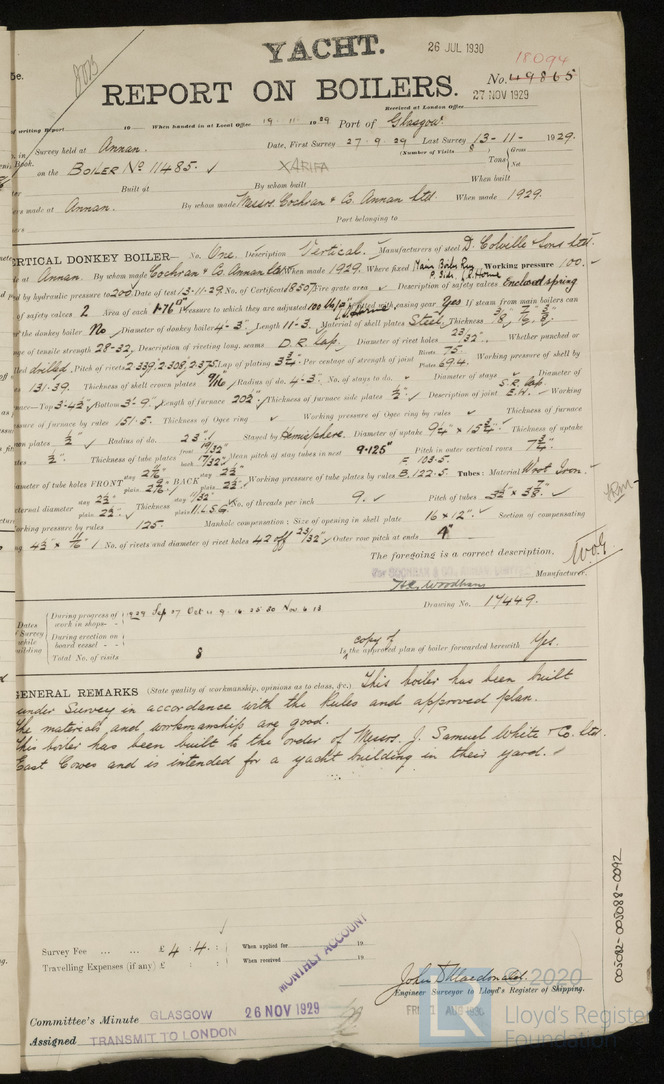 YACHT.
26 JUL 1930
18094
REPORT ON BOILERS.
No. 49865
27 NOV 1929
Received at London Office
of writing Report 19 When handed in at Local Office 19·11·1929 Port of Glasgow
Survey held at Annan. Date, First Survey 27·9·29 Last Survey 13-11- 1929.
(Number of Visits 8)
on the BOILER No 11485. XARIFA Tons Gross Net
Built at By whom built When built
made at Annan. By whom made Messrs. Cochran & Co. Annan Ltd When made 1929.
Port belonging to
VERTICAL DONKEY BOILER No. One. Description Vertical. Manufacturers of steel D. Colville & Sons Ltd.
at Annan. By whom made Cochran & Co. Annan Ltd When made 1929. Where fixed Main Boiler Rm P. Side. Working pressure 100.
by hydraulic pressure to 200. Date of test 13-11-29. No. of Certificate 18507 Fire grate area Description of safety valves Enclosed spring
of safety valves 2 Area of each 1·76" Pressure to which they are adjusted 100 lbs fitted with easing gear Yes If steam from main boilers can
the donkey boiler No Diameter of donkey boiler 4-3. Length 11-3. Material of shell plates Steel Thickness
of tensile strength 28-32 Description of riveting long. seams D.R. Lap. Diameter of rivet holes 23/32" Whether punched or
drilled Pitch of rivets 2.339", 2.308, 2.375 Lap of plating 3 3/4" Per centage of strength of joint Rivets 75. Plates 69.4. Working pressure of shell by
131·39. Thickness of shell crown plates 9/16 Radius of do. 4-3". No. of stays to do. Diameter of stays Diameter of
Top 3-4 3/4" Bottom 3-9". Length of furnace 20 1/2" Thickness of furnace side plates 1/2" Description of joint S.R. Lap. Working
of furnace by rules 151·5. Thickness of Ogee ring Working pressure of Ogee ring by rules Thickness of furnace
plates 1/2" Radius of do. 23" Stayed by Hemisphere. Diameter of uptake 9 1/4" x 15 3/4" Thickness of uptake
1/2". Thickness of tube plates front 19/32" back 17/32" Mean pitch of stay tubes in nest 9·125" Pitch in outer vertical rows 7 3/4"
Diameter of tube holes FRONT stay plain BACK stay plain Working pressure of tube plates by rules = 103.5. B. 122.5 Tubes: Material Wrot Iron.
external diameter stay plain Thickness No. of threads per inch 9. Pitch of tubes
working pressure by rules 125. Manhole compensation: Size of opening in shell plate 16 x 12". Section of compensating
4 3/4 x 11/16" No. of rivets and diameter of rivet holes 42 off 23/32" Outer row pitch at ends 4"
The foregoing is a correct description,
Manufacturer.
Dates of Survey while building During progress of work in shops 1929 Sep 27 Oct 4 9 16 25 30 Nov 6 13
During erection on board vessel
Total No. of visits 8
Drawing No. 17449.
Is the copy of approved plan of boiler forwarded herewith Yes.
GENERAL REMARKS (State quality of workmanship, opinions as to class, &c.) This boiler has been built
under Survey in accordance with the Rules and approved plan.
The materials and workmanship are good.
This boiler has been built to the order of Messrs. J. Samuel White & Co. Ltd.
East Cowes and is intended for a yacht building in their yard.
Survey Fee £ 4 : 4 : When applied for 19
Travelling Expenses (if any) £ : : When received 19
MONTHLY ACCOUNT
John D Macdonald.
Engineer Surveyor to Lloyd's Register of Shipping.
Committee's Minute GLASGOW 26 NOV 1929 FRI 1 AUG 1930
Assigned TRANSMIT TO LONDON
© 2020
Lloyd's Register
Foundation
005082-005088-0092